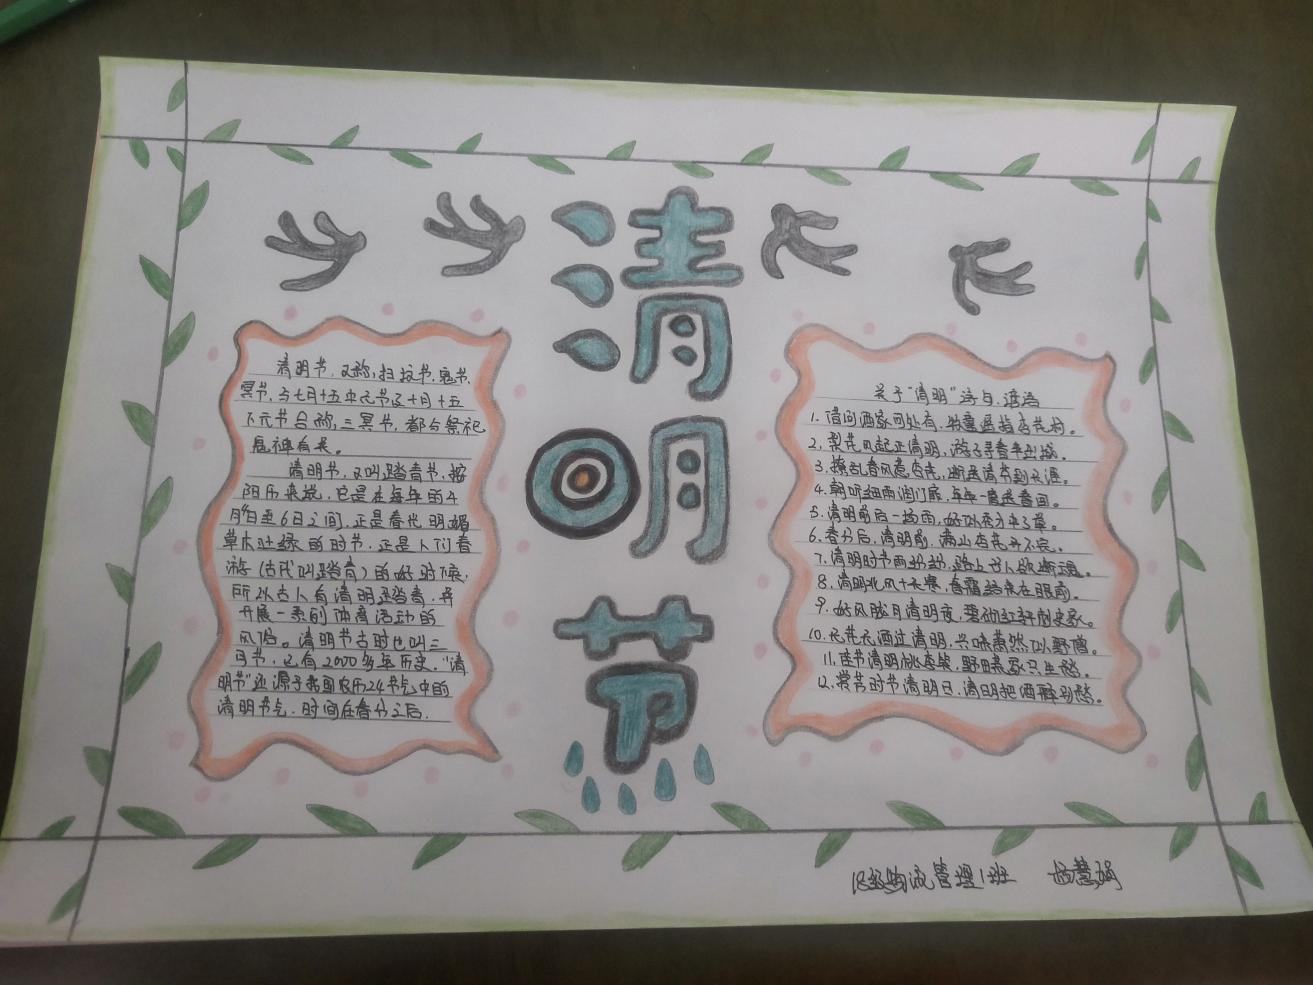 清明节
清明节，又称，扫坟节，鬼节，
冥节，与七月十五中元节及十月十五
下元节合称，三冥节，都与祭祀
鬼神有关。
清明节，又叫踏青节，按
阳历来说，它是在每年的4
月4日至6日之间，正是春光明媚
草木吐绿的时节，正是人们春
游（古代叫踏青）的好时候，
所以古人有清明踏青，并
开展一系列体育活动的
风俗。清明节古时也叫三
月节，已有2000多年历史，"清
明节"还源于我国农历24节气中的
清明节气，时间在春分之后，
关于"清明"诗句、谚语
1. 借问酒家何处有，牧童遥指杏花村。
2. 梨花风起正清明，游子寻春半出城。
3. 撩乱春风惹杏花，断送清书到天涯。
4. 朝听细雨润门麻，年年一度送春回。
5. 清明前后一场雨，好似秀才中了举。
6. 春分后，清明前，满山杏花开不完。
7. 清明时节雨纷纷，路上行人欲断魂。
8. 清明北风十天寒，春霜结束在眼前。
9. 好风胧月清明夜，碧砌红轩刺史家。
10. 无花无酒过清明，兴味萧然似野僧。
11. 佳节清明桃李笑，野田荒冢只生愁。
12. 常苦时节清明日，清明把酒解别愁。
18级物流管理1班 杨慧娟